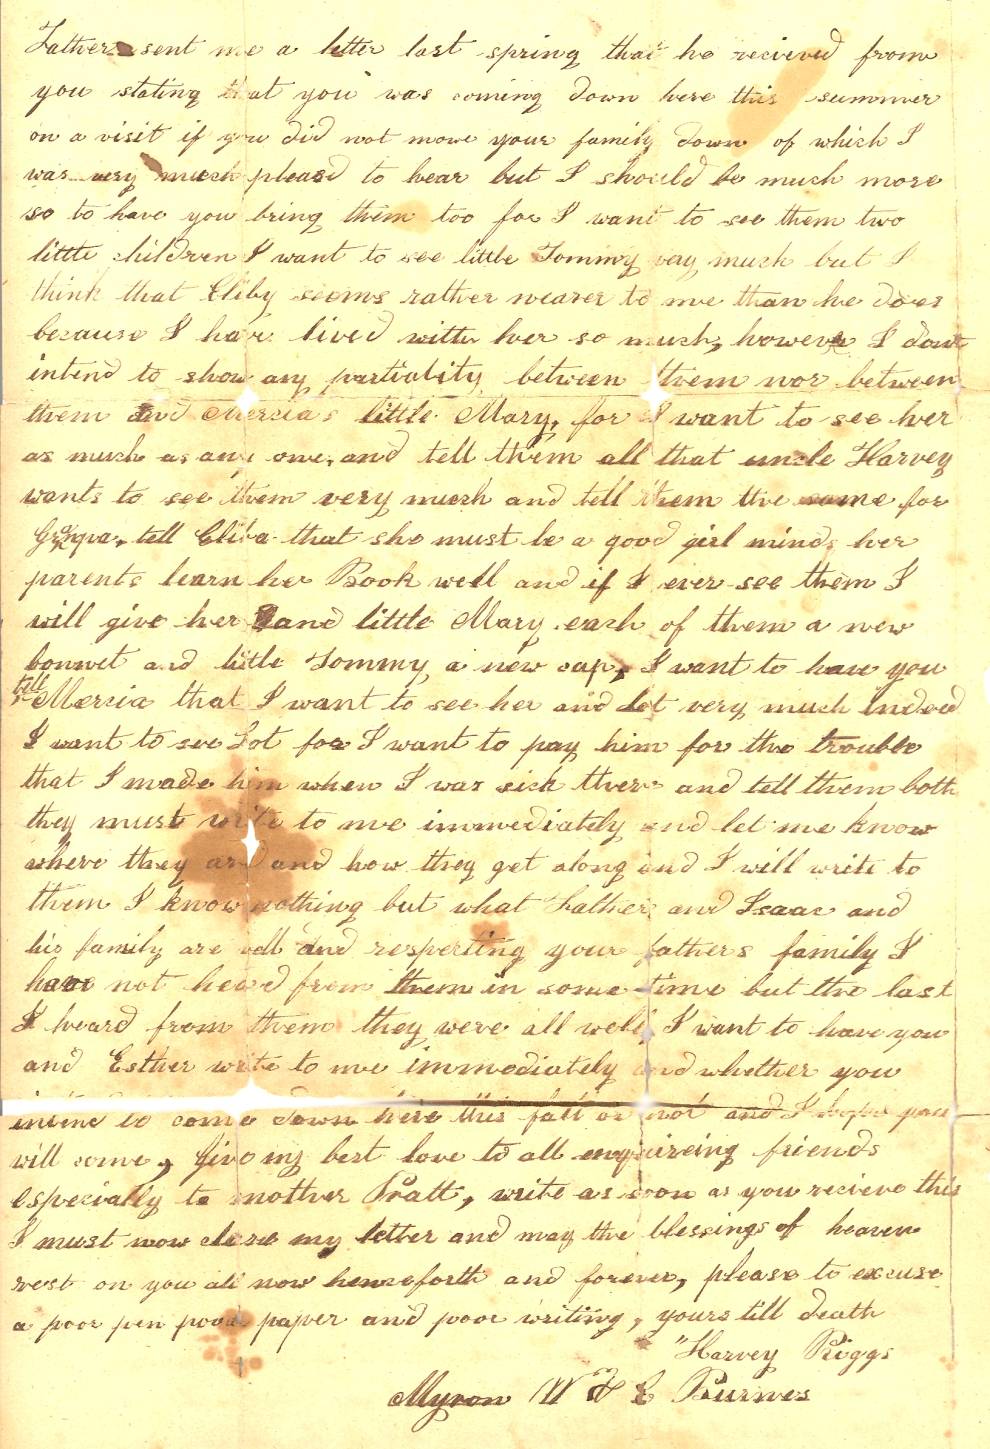 Father sent me a letter last spring that he recieved from
you stating that you was coming down here this summer
on a visit if you did not move your family down of which I
was very much pleasd to hear but I should be much more
so to have you bring them too for I want to see them two
little children I want to see little Tommy vay much but I
think that Eliby seems rather nearer to me than he does
because I have lived with her so much, however I dont
intend to show any partiality between them nor between
them and Mercia's little Mary, for I want to see her
as much as any one, and tell them all that uncle Harvey
wants to see them very much and tell them the same for
Granpa, tell Eliba that she must be a good girl minds her
parents learn her Book well and if I ever see them I
will give her and little Mary each of them a new
bonnet and little Tommy a new cap, I want to have you
tell Mercia that I want to see her and Lot very much Indeed
I want to see Lot for I want to pay him for the trouble
that I made him when I was sick there and tell them both
they must write to me immediately and let me know
where they are and how they get along and I will write to
them I know nothing but what Father and Isaac and
his family are well and respecting your fathers family I
have not heard from them in some time but the last
I heard from them they were all well, I want to have you
and Esther write to me immediately and whether you
intend to come down here this fall or not and I hope you
will come, Give my best love to all enquireing friends
especially to mother Pratt, write as soon as you recieve this
I must now close my letter and may the blessings of heaven
rest on you all now henceforth and forever, please to excuse
a poor pen poor paper and poor writing, yours till death
"Harvey Riggs
Myron W F & Burnes